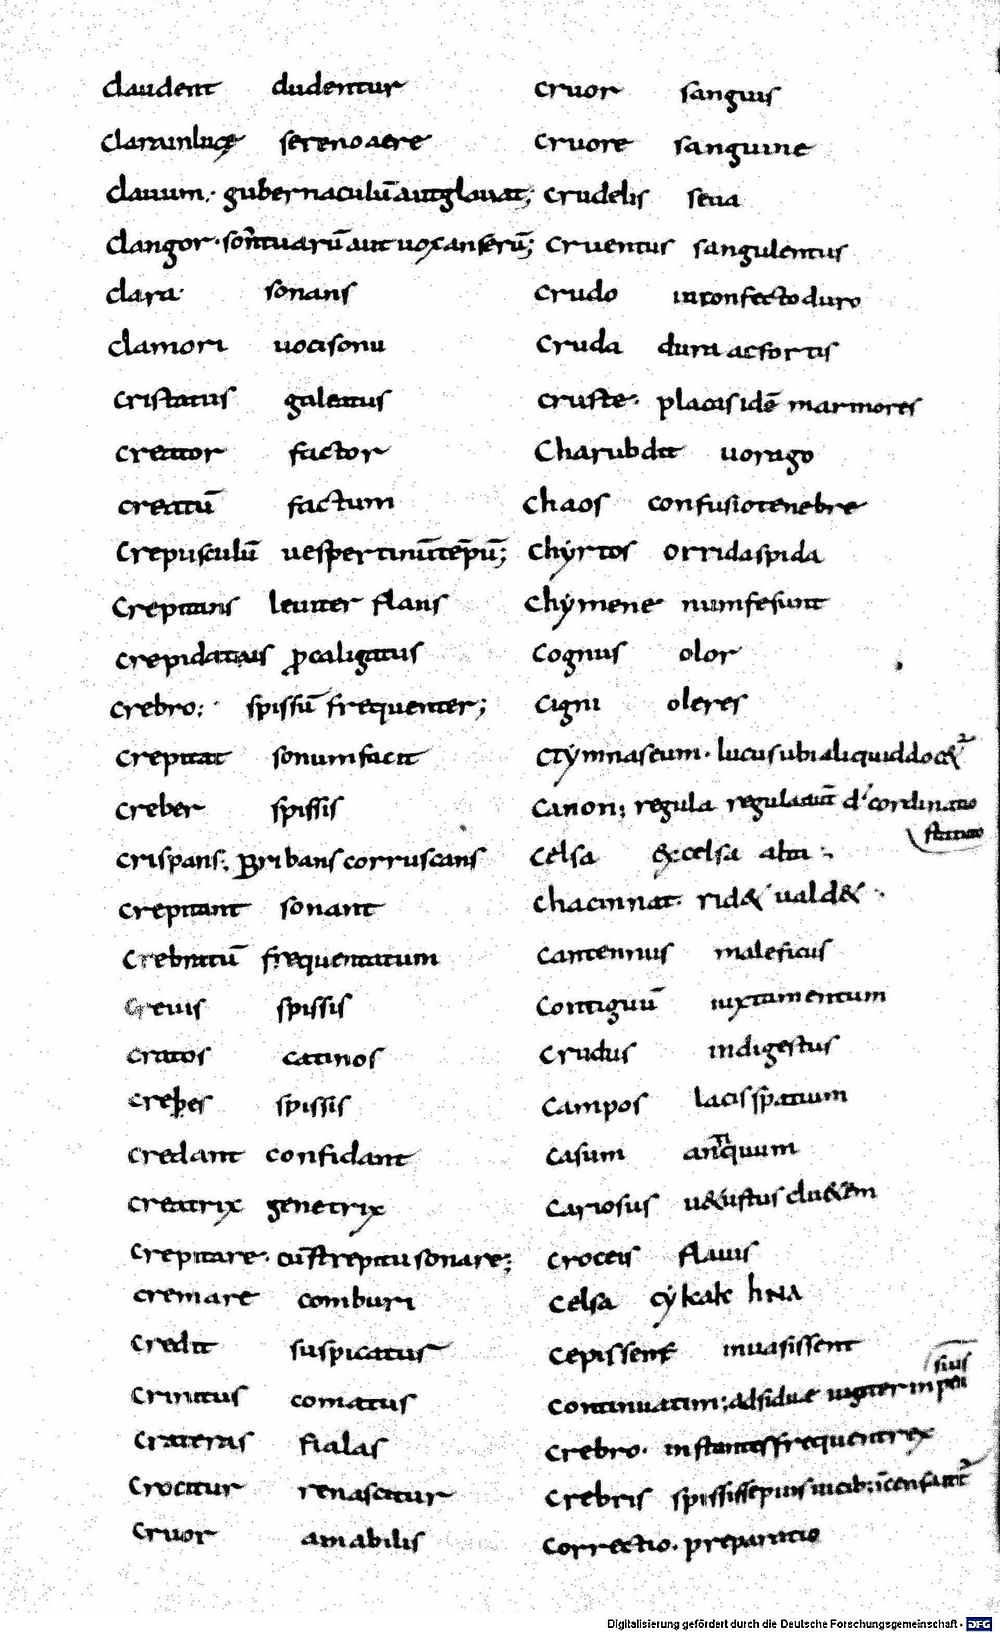 claudent cludentur
clarainluce sereno aere
clauum. gubernaculū aut glauat;
clangor. aut uox anserū;
clara sonans
clamori uocisonu
cristatus galeatus
creator factor
creatū factum
crepusculū uespertinū tēpū;
crepitans leuiter flans
procaligatus
crebro; spissū frequenter;
crepitat sonum facit
creber spissis
crispans; corruscans
crepitant sonant
frequentatum
spissis
cratos catinos
spissis
credant confidant
creatrix genetrix
crepitare. cū strepitu sonare;
cremare comburi
credit suspicatus
crinitus comatus
crateras fialas
renascitur
cruor amabilis
cruor sanguis
cruore sanguine
crudelis seua
cruentus sangulentus
crudo inconfecto duro
cruda dura ac fortis
cruste. placas idē marmores
charubdit uorago
chaos confusio tenebre
chyrtos orrida spida
chymene
cognus olor
cigni oleres
lucus ubi aliquid doc&
canon; regula
celsa excelsa alta
chacinnat rid& uald&
maleficus
contiguū iuxta mentum
crudus indigestus
campos lacis spatium
casum antiquum
cariosus u&ustus
croceis flauis
celsa
cepissent inuasissent
continuatim; adsiduae
crebro. frequenter
crebris
correctio. preparatio
Digitalisierung gefördert durch die Deutsche Forschungsgemeinschaft - DFG